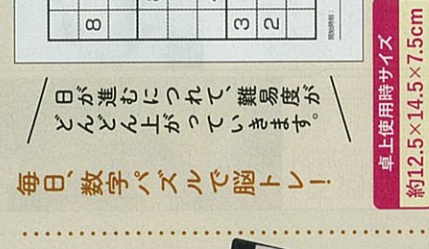 8
3 2
開始時刻:
日が進むにつれて、難易度が
どんどん上がっていきます。
毎日、数字パズルで脳トレ!
卓上使用時サイズ
約12.5×14.5×7.5cm